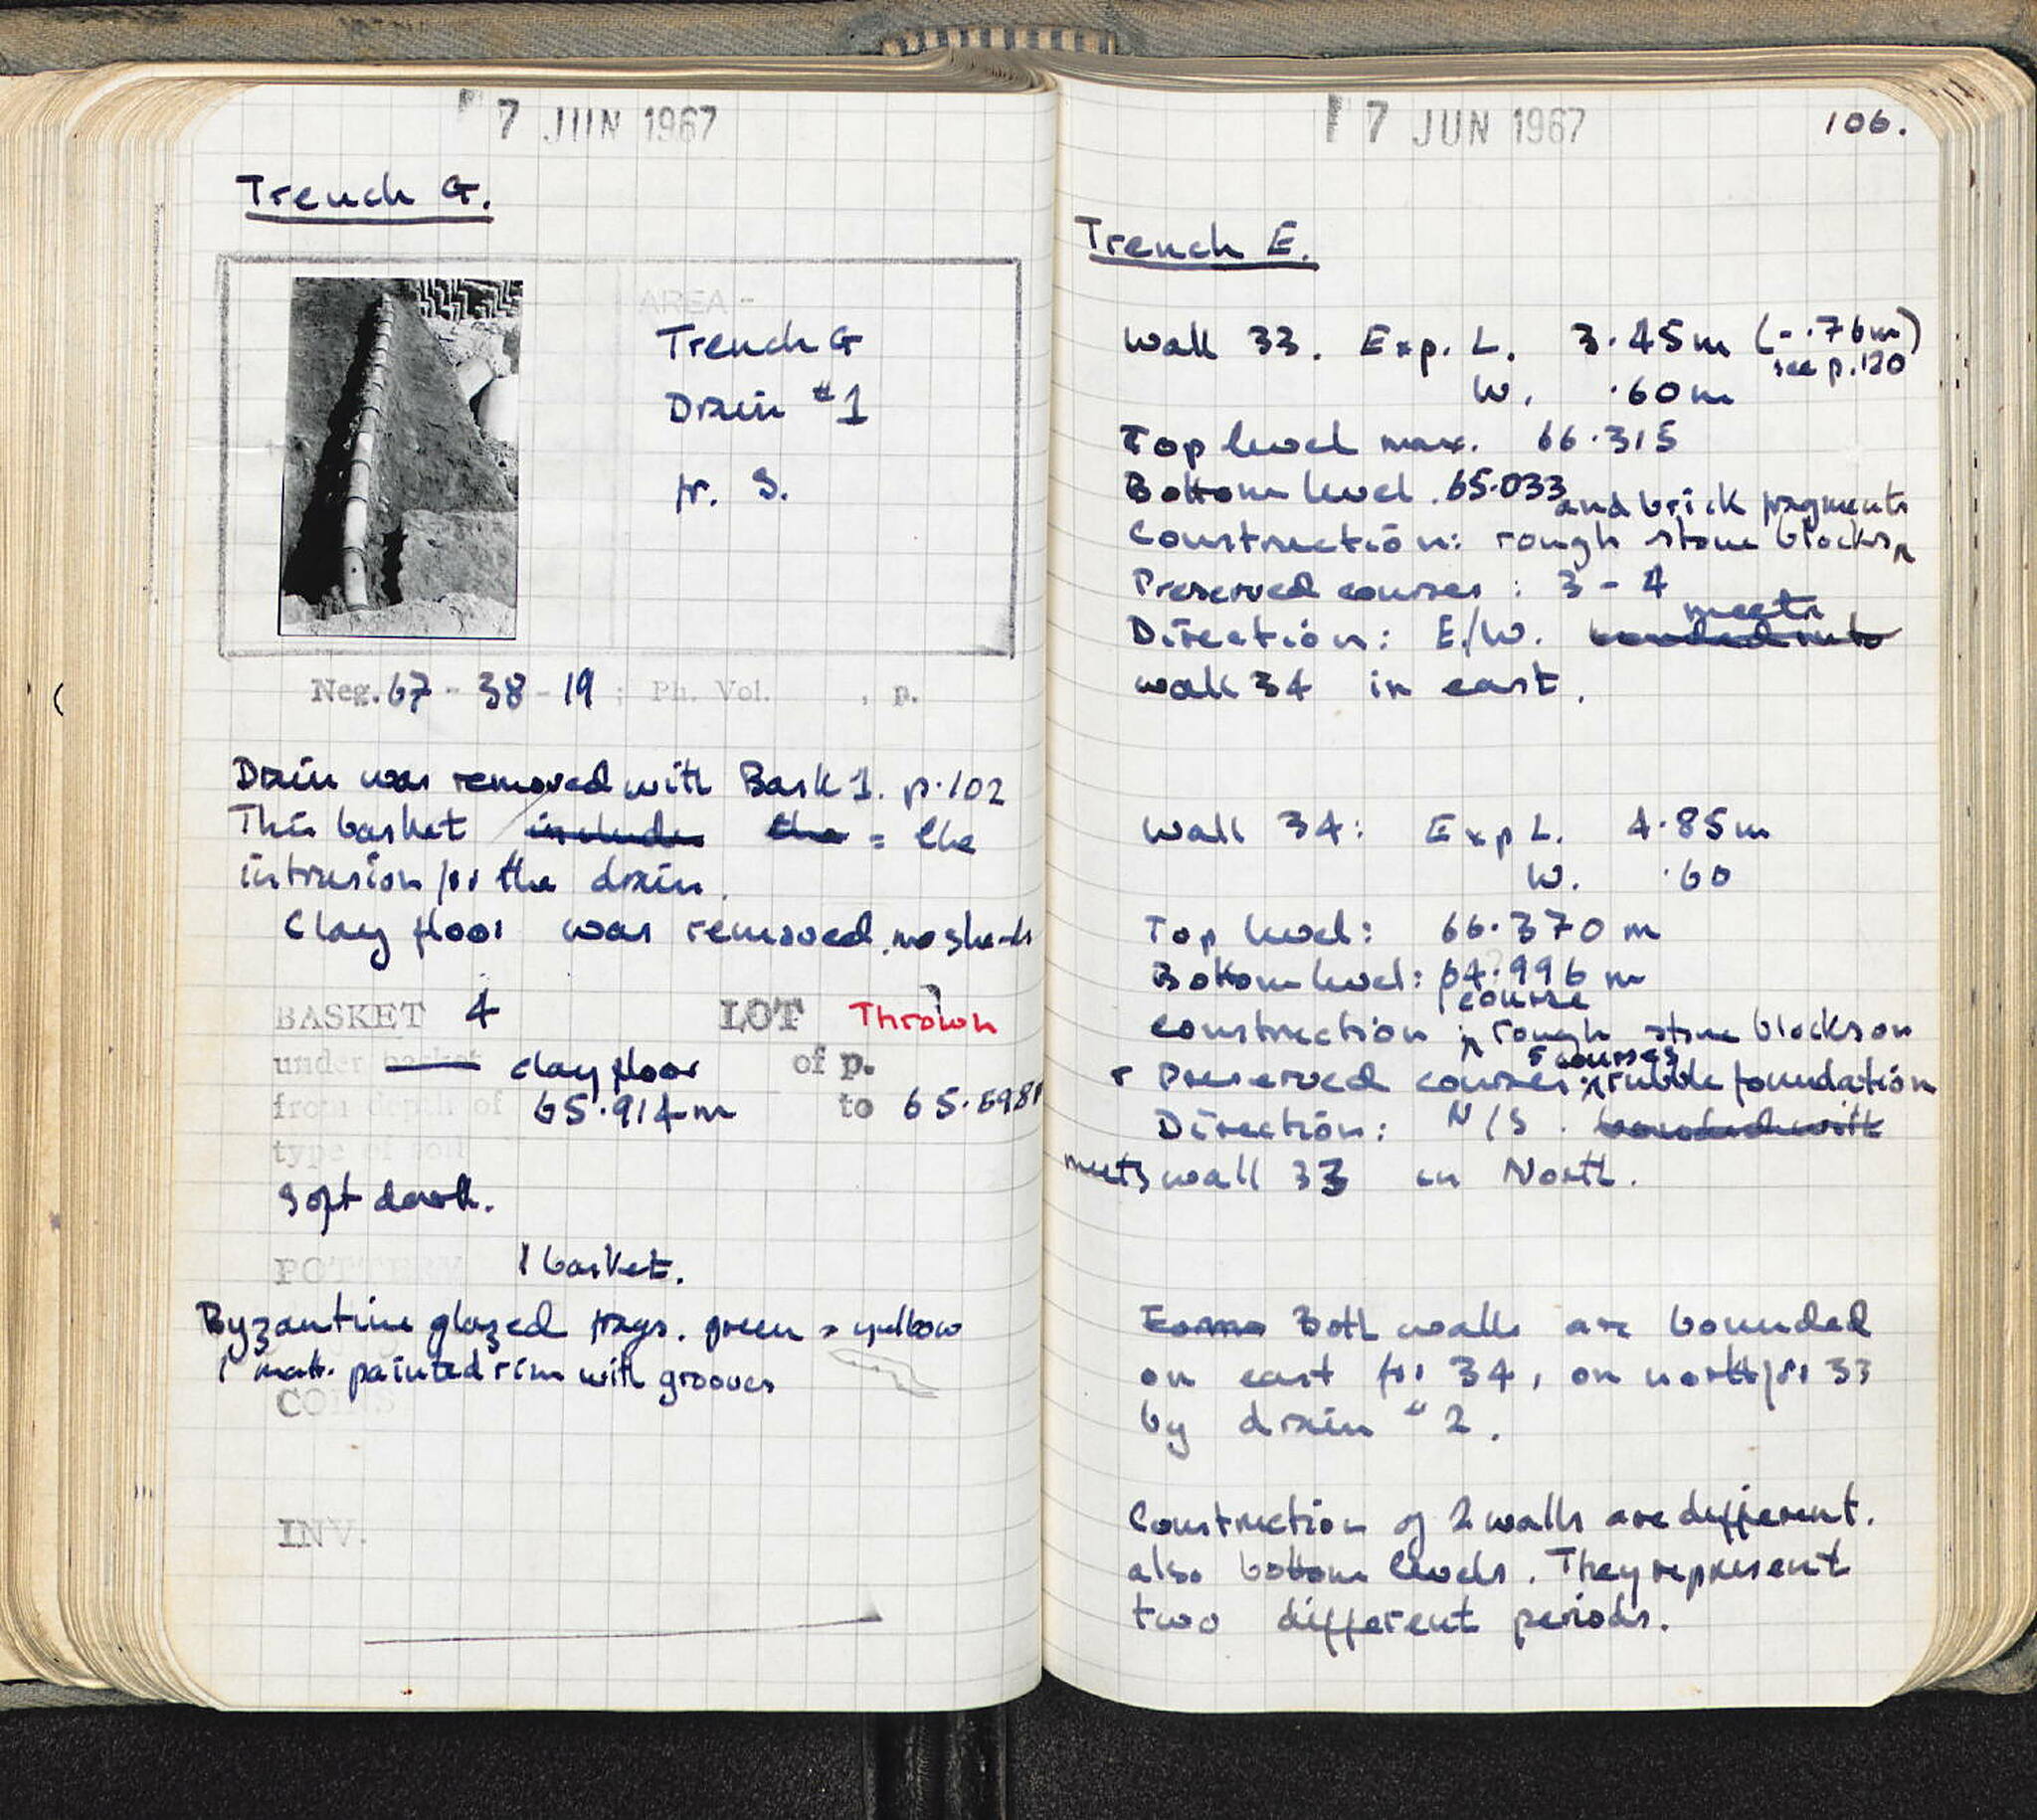 7 JUN 1967
Trench G.
AREA -
Trench G
Drain #1
fr. S.
Neg. 67 - 38 - 19 ; Ph. Vol. , p.
Drain was removed with Bask 1. p. 102
This basket include the = the
intrusion for the drain.
Clay floor was removed. no sherds
BASKET 4 LOT Thrown
under basket clay floor of p.
from depth of 65.914 m to 65.598
type of soil
Soft dark.
POTTERY 1 basket.
Byzantine glazed frags. green + yellow
1 matt. painted rim with grooves
COINS
INV.
17 JUN 1967 106.
Trench E.
Wall 33. Exp. L. 3.45 m (-.76m)
see p. 120
W. .60 m
Top level max. 66.315
Bottom level. 65.033
and brick fragments
Construction: rough stone blocks
Preserved courses: 3 - 4
meets
Direction: E/W. bonded into
wall 34 in east.
Wall 34: Exp L. 4.85 m
W. .60
Top level: 66.370 m
Bottom level: 64.996 m
1 course
construction rough stone blocks on
5 courses
+ Preserved courses: rubble foundation
Direction: N/S. bonded with
meets wall 33 in North.
Both walls are bounded
on east for 34, on north for 33
by drain #2.
Construction of 2 walls are different.
also bottom levels. They represent
two different periods.